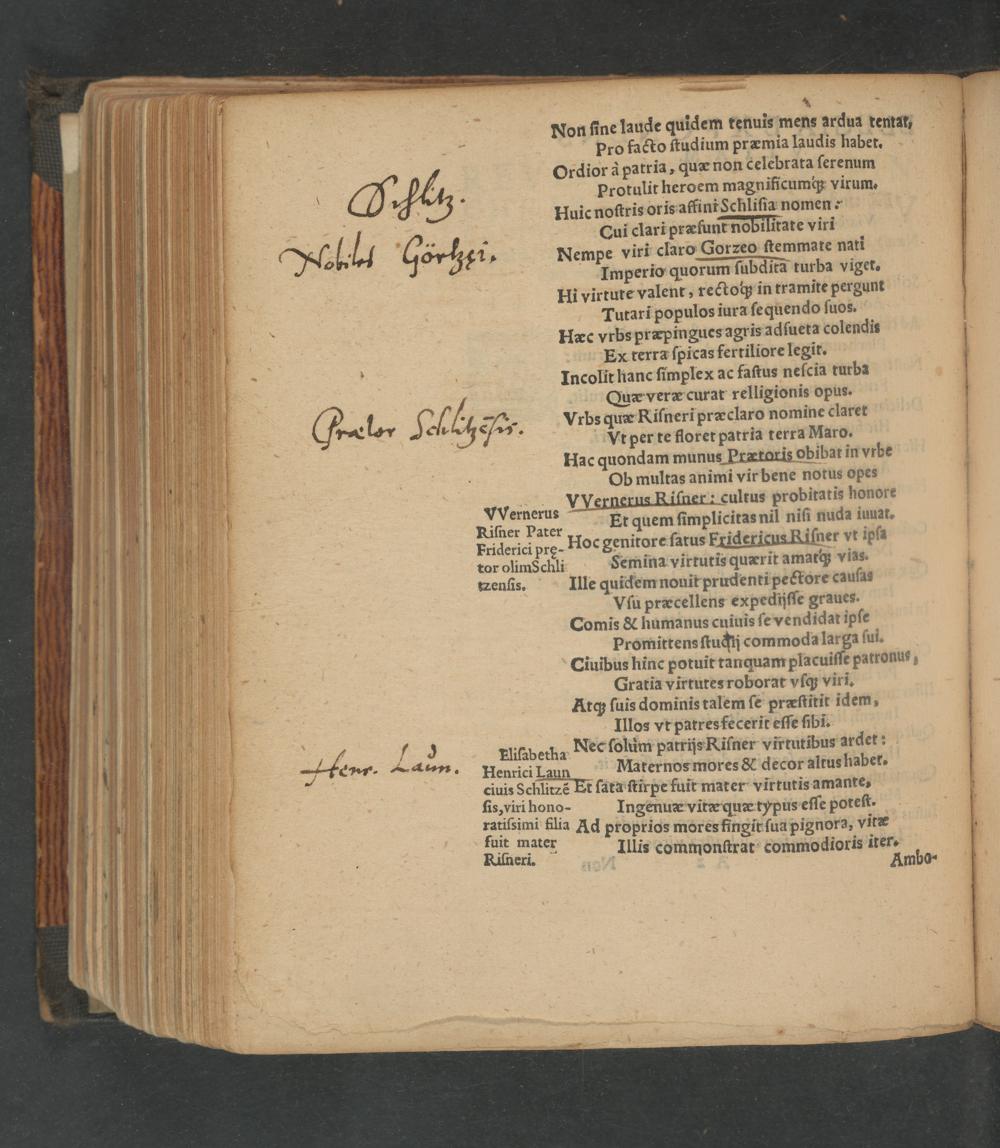 Non ſine laude quidem tenuis mens ardua tentat,
Pro facto ſtudium præmia laudis habet.
Ordior à patria, quæ non celebrata ſerenum
Protulit heroem magnificumq́; virum.
Schlitz.
Huic noſtris oris affini Schliſia nomen:
Cui clari præſunt nobilitate viri
Nobiles Görtzęi.
Nempe viri claro Gorzeo ſtemmate nati
Imperio quorum ſubdita turba viget.
Hi virtute valent, rectoq́; in tramite pergunt
Tutari populos iura ſequendo ſuos.
Hæc vrbs præpingues agris adſueta colendis
Ex terra ſpicas fertiliore legit.
Incolit hanc ſimplex ac faſtus neſcia turba
Quæ veræ curat relligionis opus.
Vrbs quæ Riſneri præclaro nomine claret
Vt per te floret patria terra Maro.
Prætor Schlitzēsis.
Hac quondam munus Prætoris obibat in vrbe
Ob multas animi vir bene notus opes
VVernerus Riſner: cultus probitatis honore
Et quem ſimplicitas nil niſi nuda iuuat.
VVernerus
Riſner Pater
Friderici prę-
tor olim Schli
tzenſis.
Hoc genitore ſatus Fridericus Riſner vt ipſa
Semina virtutis quærit amatq́; vias.
Ille quidem nouit prudenti pectore cauſas
Vſu præcellens expedijſſe graues.
Comis & humanus cuiuis ſe vendidat ipſe
Promittens ſtudij commoda larga ſui.
Ciuibus hinc potuit tanquam placuiſſe patronus,
Gratia virtutes roborat vſq; viri.
Atq; ſuis dominis talem ſe præſtitit idem,
Illos vt patres fecerit eſſe ſibi.
Nec ſolùm patrijs Riſner virtutibus ardet:
Maternos mores & decor altus habet.
Henr. Laun.
Eliſabetha
Henrici Laun
ciuis Schlitzē
ſis, viri hono-
ratiſsimi filia
fuit mater
Riſneri.
Et ſata ſtirpe fuit mater virtutis amante,
Ingenuæ vitæ quæ typus eſſe poteſt.
Ad proprios mores fingit ſua pignora, vitæ
Illis commonſtrat commodioris iter.
Ambo-